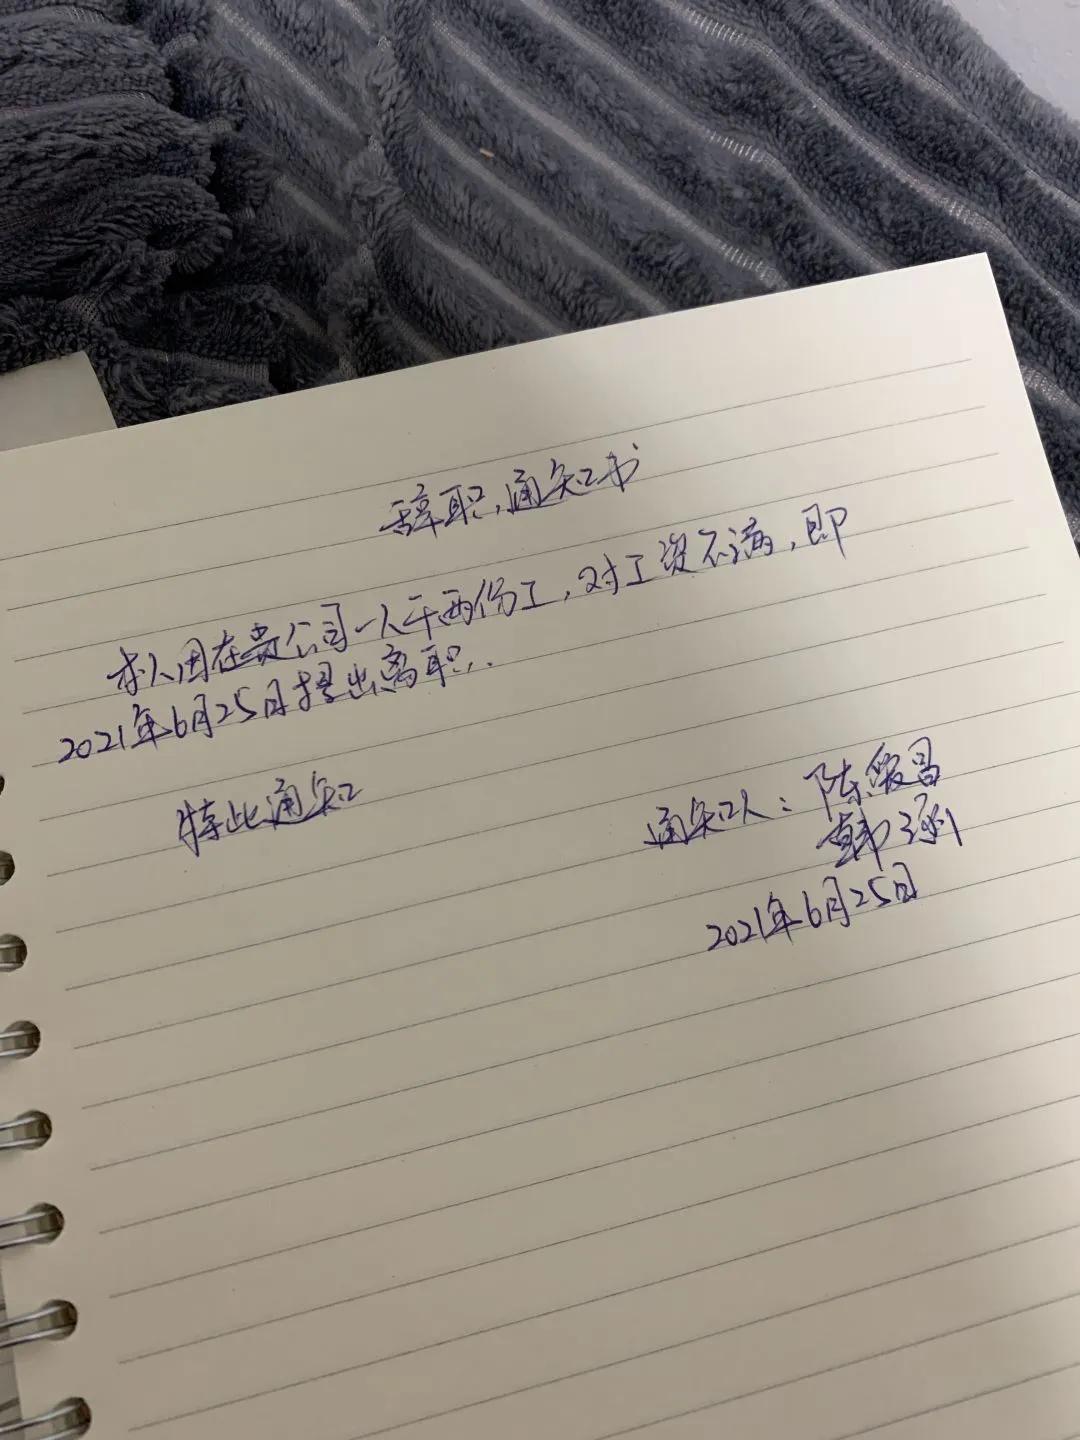 辞职通知书
本人因在贵公司一人干两份工,对工资不满,即
2021年6月25日提出离职.
特此通知
通知人:陈俊昌
韩
2021年6月25日